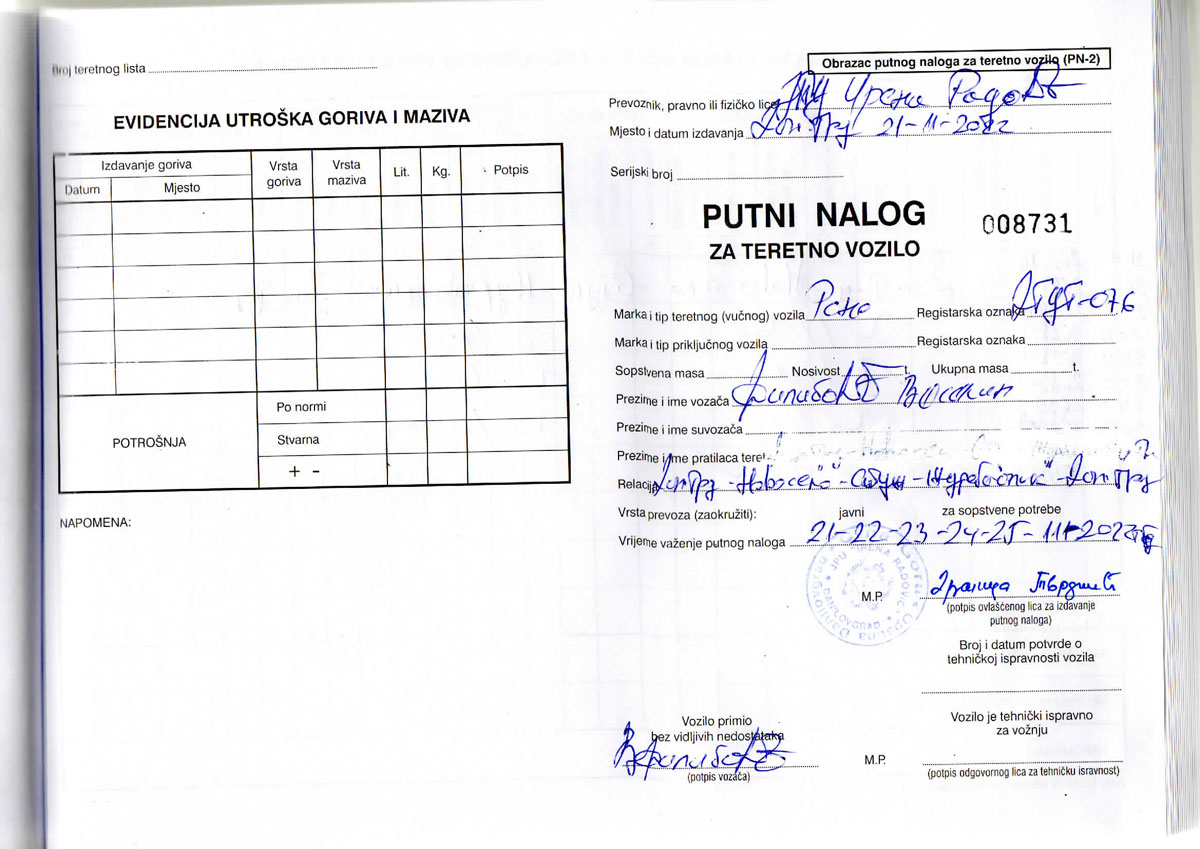 Broj teretnog lista
EVIDENCIJA UTROŠKA GORIVA I MAZIVA
Izdavanje goriva
Datum
Mjesto
Vrsta goriva
Vrsta maziva
Lit.
Kg.
Potpis
POTROŠNJA
Po normi
Stvarna
+ -
NAPOMENA:
Obrazac putnog naloga za teretno vozilo (PN-2)
Prevoznik, pravno ili fizičko lice ЈПУ Ирена Радовић
Mjesto i datum izdavanja 21-11-2022
Serijski broj
PUTNI NALOG 008731
ZA TERETNO VOZILO
Marka i tip teretnog (vučnog) vozila Рено Registarska oznaka
Marka i tip priključnog vozila Registarska oznaka
Sopstvena masa Nosivost t. Ukupna masa t.
Prezime i ime vozača
Prezime i ime suvozača
Prezime i ime pratilaca tereta
Relacija
Vrsta prevoza (zaokružiti): javni za sopstvene potrebe
Vrijeme važenje putnog naloga 21-22-23-24-25-11-2022
JPU "IRENA RADOVIĆ" DANILOVGRAD
M.P.
(potpis ovlašćenog lica za izdavanje
putnog naloga)
Broj i datum potvrde o
tehničkoj ispravnosti vozila
Vozilo primio
bez vidljivih nedostataka
(potpis vozača)
Vozilo je tehnički ispravno
za vožnju
M.P.
(potpis odgovornog lica za tehničku isravnost)